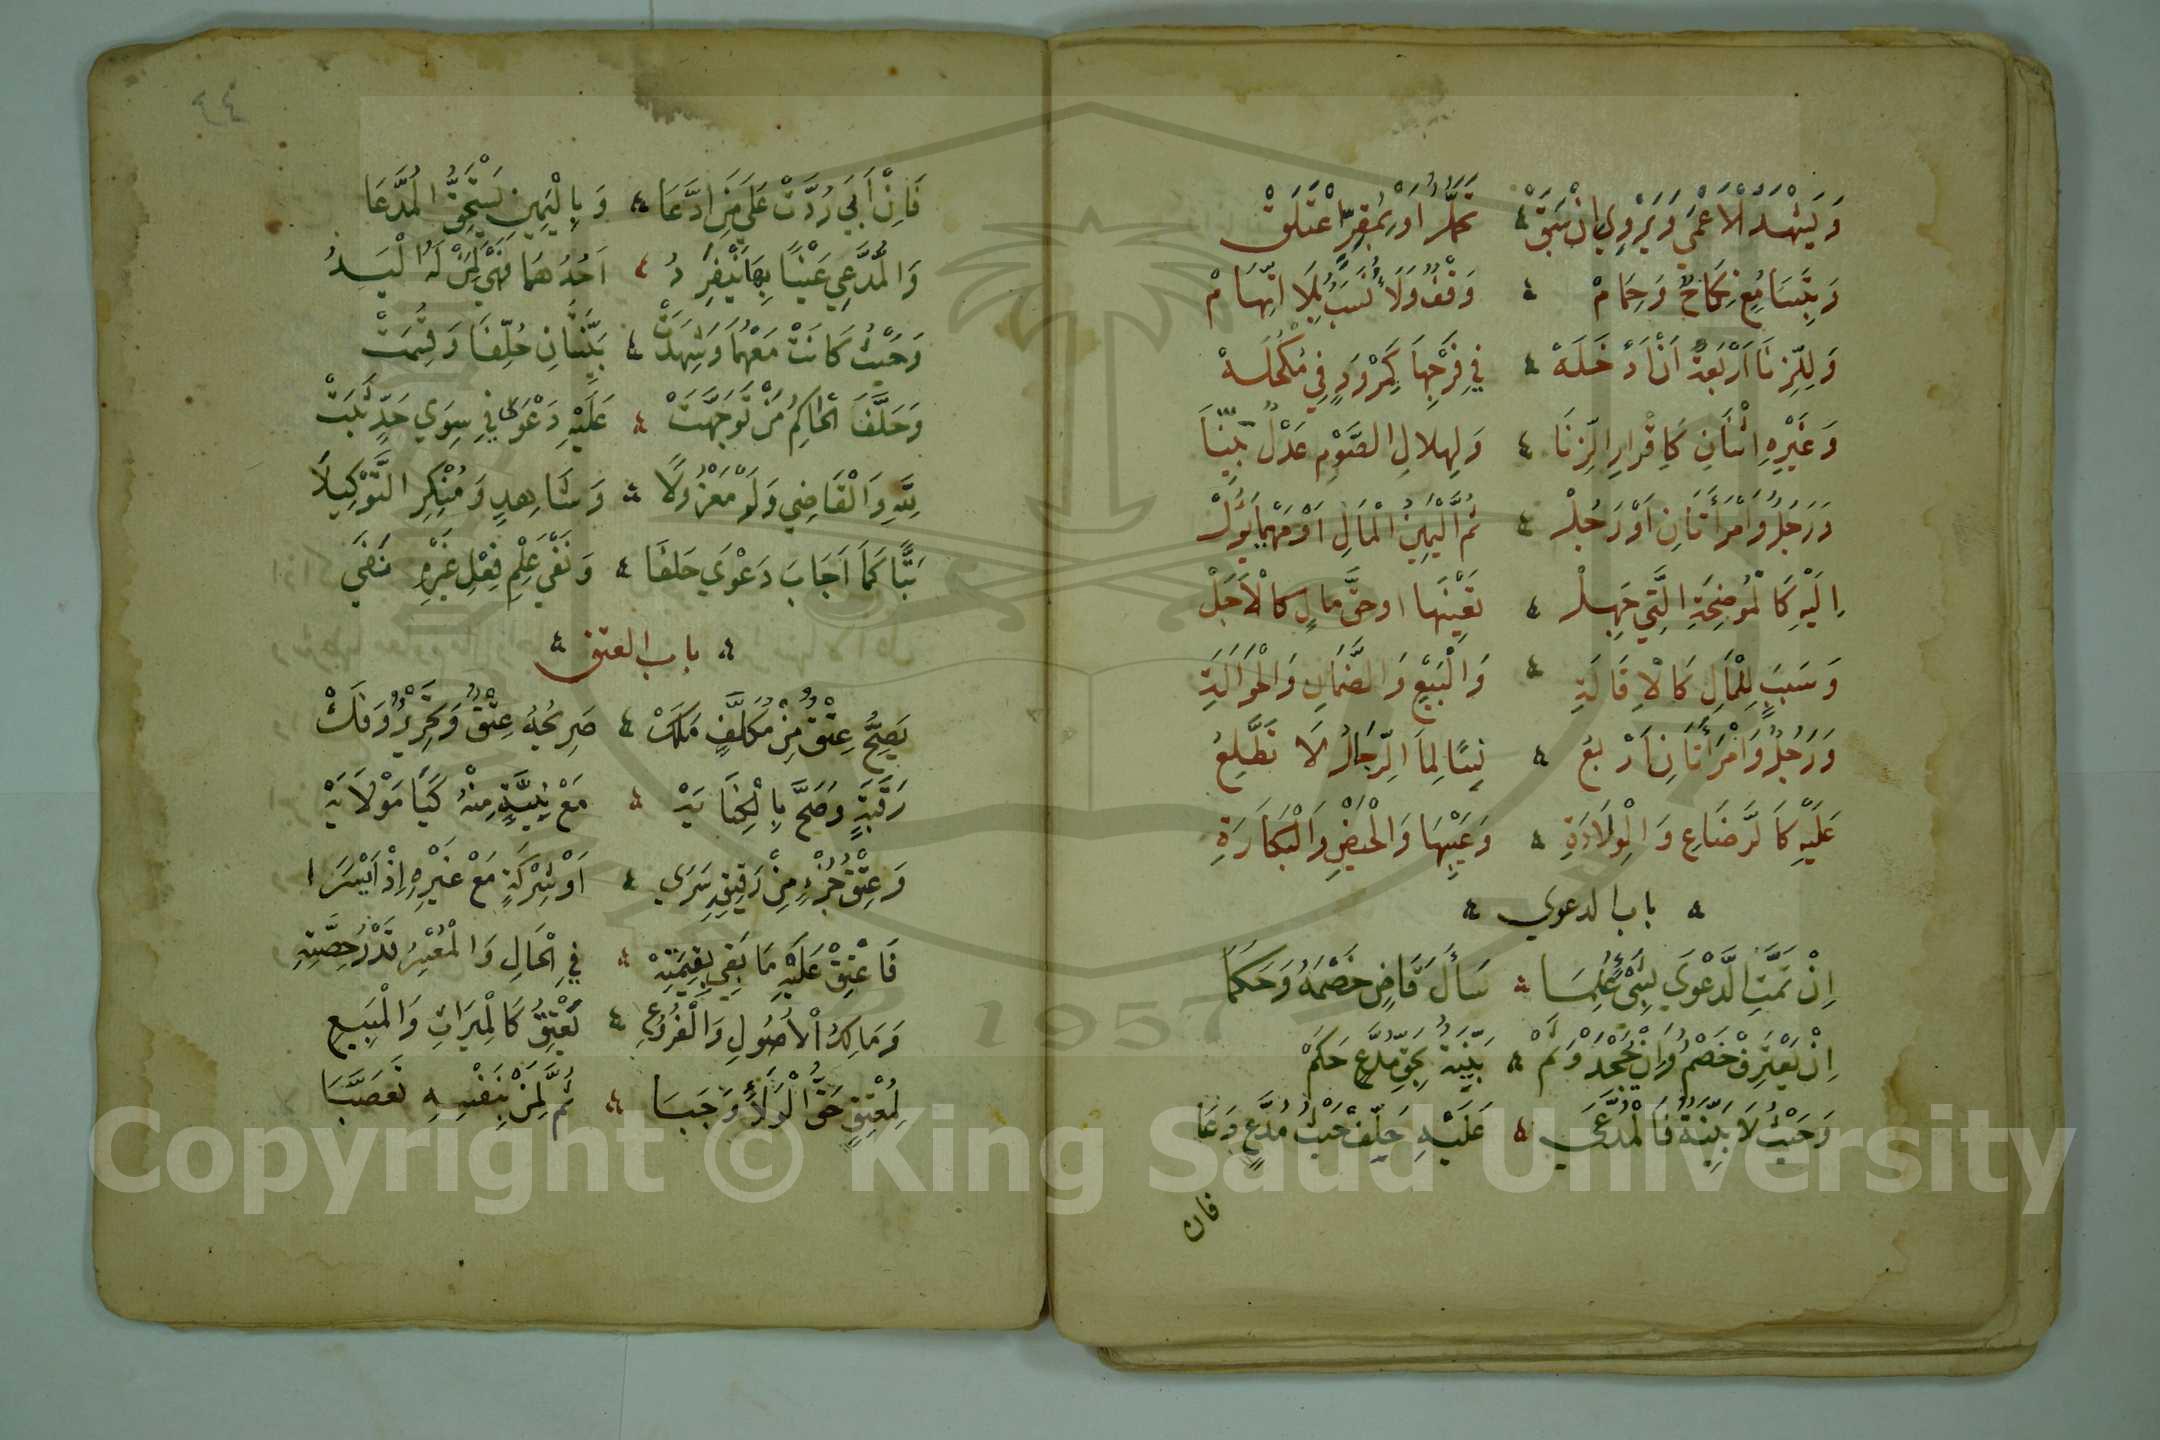 وَيَشْهَدُ الْأَعْمَى وَيَرْوِي إِنْ سَبَقْ ؞ تَحَمُّلٌ أَوْ بِمُقِرٍّ اعْتَلَقْ
وَبِتَسَامُعٍ نِكَاحٌ وَحِمَامْ ؞ وَقْفٌ وَلَاءٌ نَسَبٌ بِلَا اتِّهَامْ
وَلِلزِّنَا أَرْبَعَةٌ أَنْ أَدْخَلَهْ ؞ فِي فَرْجِهَا كَمِرْوَدٍ فِي مُكْحُلَهْ
وَغَيْرِهِ اثْنَانِ كَإِقْرَارِ الزِّنَا ؞ وَلِهِلَالِ الصَّوْمِ عَدْلٌ بَيِّنَا
وَرَجُلٌ وَامْرَأَتَانِ أَوْ رَجُلْ ؞ ثُمَّ الْيَمِينُ الْمَالِ أَوْ مَهْمَا يَؤُلْ
إِلَيْهِ كَالْمُوضِحَةِ الَّتِي جُهِلْ ؞ تَعْيِينُهَا أو حَقَّ مَالٍ كالْأَجَلْ
وَسَبَبٍ لِلْمَالِ كَالْإِقَالَةِ ؞ وَالْبَيْعِ وَالضَّمَانِ وَالْحَوَالَةِ
وَرَجُلٌ وَامْرَأَتَانِ أَرْبَعُ ؞ نِسًا لِمَا الرِّجَالُ لَا تَطَّلِعُ
عَلَيْهِ كَالرَّضَاعِ وَالْوِلَادَةِ ؞ وَعَيْبِهَا وَالْحَيْضِ وَالْبَكَارَةِ
؞ باب الدعوي ؞
إِنْ تَمَّتِ الدَّعْوَي بِشَيْءٍ عُلِمَا ؞ سَأَلَ قَاضٍ خَصْمَهُ وَحَكَمَا
إِنْ يَعْتَرِفْ خَصْمٌ وَإِنْ يَجْحَدْ وَثَمْ ؞ بَيِّنَةٌ بِحَقِّ مُدَّعٍ حَكَمْ
وَحَيْثُ لَا بَيِّنَةٌ فَالْمُدَّعَي ؞ عَلَيْهِ حَلِّفْ حَيْثُ مُدَّعٍ دَعَا
فان
فَإِنْ أَبَي رُدَّتْ عَلَي مَنِ ادَّعَا ؞ وَبِالْيَمِينِ يَسْتَحِقُّ الْمُدَّعَا
وَالْمُدَّعِي عَيْنًا بِهَا يَنْفَرِدُ ؞ أَحَدُهُمَا فَهْيَ لِمَنْ لَهُ الْيَدُ
وَحَيْثُ كَانَتْ مَعْهُمَا وَشَهِدَتْ ؞ بَيِّنَتَانِ حُلِّفَا وَقُسِّمَتْ
وَحَلَّفَ الْحَاكِمُ مَنْ تَوَجَّهَتْ ؞ عَلَيْهِ دَعْوَي فِي سِوَي حَدٍّ ثَبَتْ
لِلَّهِ وَالْقَاضِي وَلَوْ مَعْزُولَا ؞ وَشَاهِدٍ وَمُنْكِرِ التَّوْكِيلَا
بَتًّا كَمَا أَجَابَ دَعْوَي حَلَفَا ؞ وَنَفْيَ عِلْمِ فِعْلِ غَيْرِهِ نَفَي
؞ باب العتق ؞
يَصِحُّ عِتْقٌ مِنْ مُكَلَّفٍ مَلَكْ ؞ صَرِيحُهُ عِتْقٌ وَتَحْرِيرٌ وَفَكْ
رَقَبَةٍ وَصَحَّ بِالْكِنَايَهْ ؞ مَعْ نِيَّةٍ مِنْهُ كَيَا مَوْلَايَهْ
وَعِتْقُ جُزْءٍ مِنْ رَقِيقٍ سَرَي ؞ أَوْ شِرْكَةٍ مَعْ غَيْرِهِ إِذْ أَيْسَرَا
فَأَعْتِقْ عَلَيْهِ مَا بَقِي بِقِيمَتِهْ ؞ فِي الْحَالِ وَالْمُعْسِرُ قَدْرُ حِصَّتِهِ
وَمَالِكُ الْأُصُولِ وَالْفُرُوعِ ؞ يُعْتِقُ كَالْمِيرَاثِ وَالْمَبِيعِ
لِمُعْتِقٍ حَقُّ الْوَلَاءِ وَجَبَا ؞ ثُمَّ لِمَنْ بِنَفْسِهِ تَعَصَّبَا
1957
Copyright © King Saud University